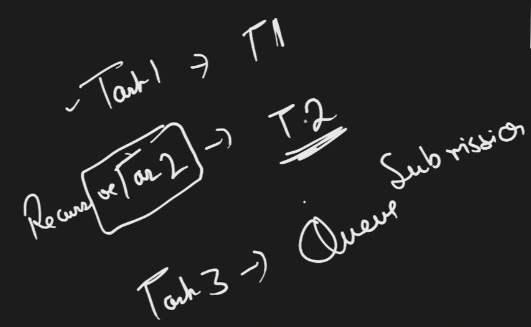 Task 1 → T1
Recursive Task 2 → T.2
Task 3 → Queue Submission